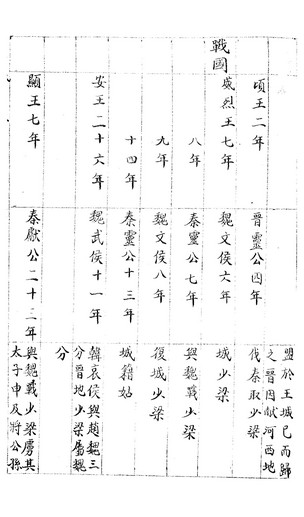 盟於王城已而歸
之晉因獻河西地
頃王二年 晉靈公四年 伐秦取少梁
戰國
威烈王七年 魏文侯六年 城少梁
八年 秦靈公七年 與魏戰少梁
九年 魏文侯八年 復城少梁
十四年 秦靈公十三年 城籍姑
安王二十六年 魏武侯十一年 韓哀侯與趙魏三
分晉地少梁屬魏
分
顯王七年 秦獻公二十三年 與魏戰少梁虜其
太子申及將公孫